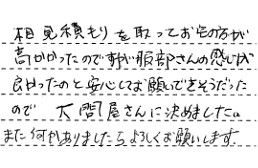 相見積もりを取ってお宅の方が
高かかったのですが服部さんの感じが
良かったのと安心してお願いできそうだった
ので 大問屋さんに決めました。
また何かありましたらよろしくお願いします。